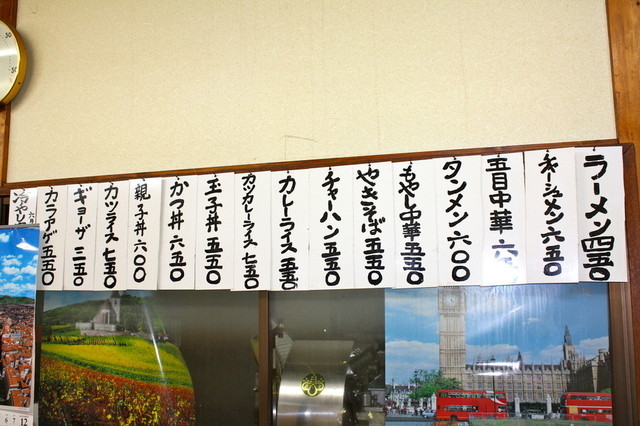 ラーメン 四五〇
チャーシューメン 六五〇
五目中華 六
タンメン 六〇〇
もやし中華 五五〇
やきそば 五五〇
チャーハン 五五〇
カレーライス 五五〇
カツカレーライス 七五〇
玉子丼 五五〇
かつ丼 六五〇
親子丼 六〇〇
カツライス 七五〇
ギョーザ 三五〇
カラアゲ 五五〇
冷やし
六月
50
50
6 7 12